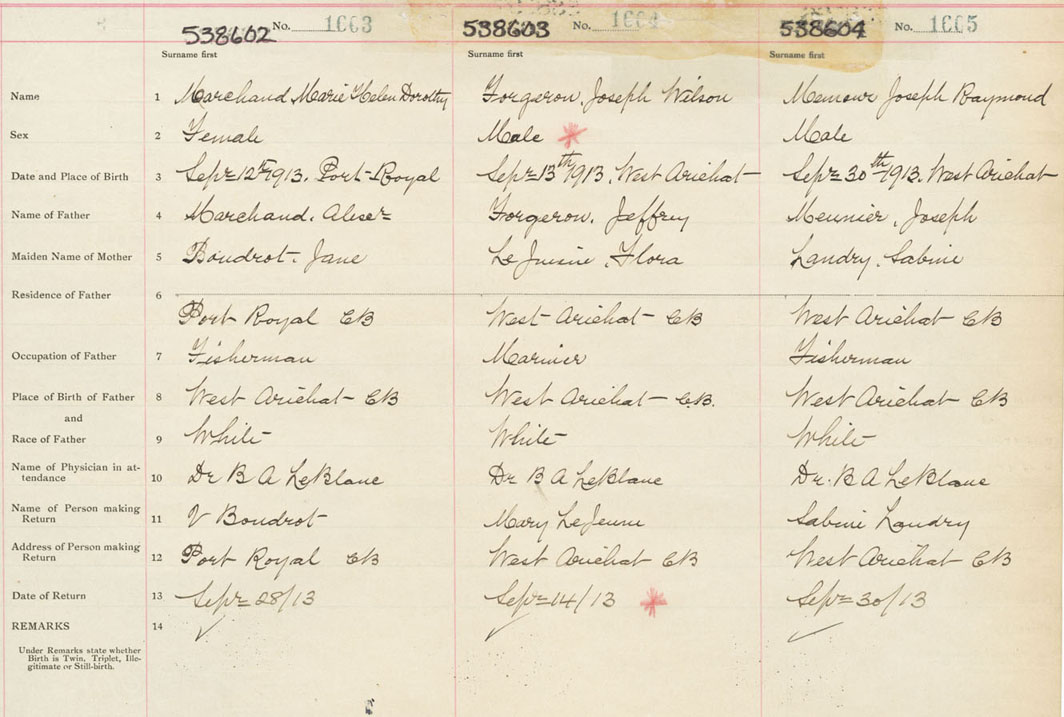 538602 No. 1663 538603 No. 1664 538604 No. 1665
Surname first Surname first Surname first
Name 1 Marchand Marie Helen Dorothy Forgeron, Joseph Wilson Joseph Raymond
Sex 2 Female Male Male
Date and Place of Birth 3 Sept 12th 1913. Port-Royal Sept 13th 1913. West Arichat Sept 30th 1913. West Arichat
Name of Father 4 Marchand. Forgeron. Jeffrey Meunier, Joseph
Maiden Name of Mother 5 Boudrot. Jane Flora Landry. Sabine
Residence of Father 6
Port Royal CB West-Arichat-CB West Arichat CB
Occupation of Father 7 Fisherman Mariner Fisherman
Place of Birth of Father 8 West Arichat-CB West Arichat-C.B. West Arichat CB
and
Race of Father 9 White White White
Name of Physician in at-
tendance 10 Dr B A LeBlanc Dr B A LeBlanc Dr. B A LeBlanc
Name of Person making
Return 11 V Boudrot Mary LeJeune Sabine Landry
Address of Person making
Return 12 Port Royal CB West Arichat CB West Arichat CB
Date of Return 13 Sept 28/13 Sept 14/13 Sept 30/13
REMARKS 14
Under Remarks state whether
Birth is Twin, Triplet, Ille-
gitimate or Still-birth.